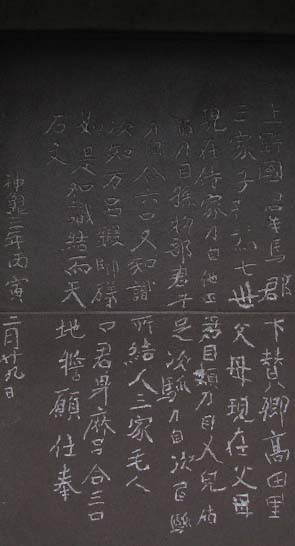 上野國羣馬郡下賛郷高田里
三家子孫為七世父母現在父母
現在侍家刀自他田君目頬刀自又兒加
那刀自孫物部君午足次馴刀自次乙馴
刀自合六口又知識所結人三家毛人
次知万呂鍛師礒部君身麻呂合三口
如是知識結而天地誓願仕奉
石文
神龜三年丙寅二月廿九日